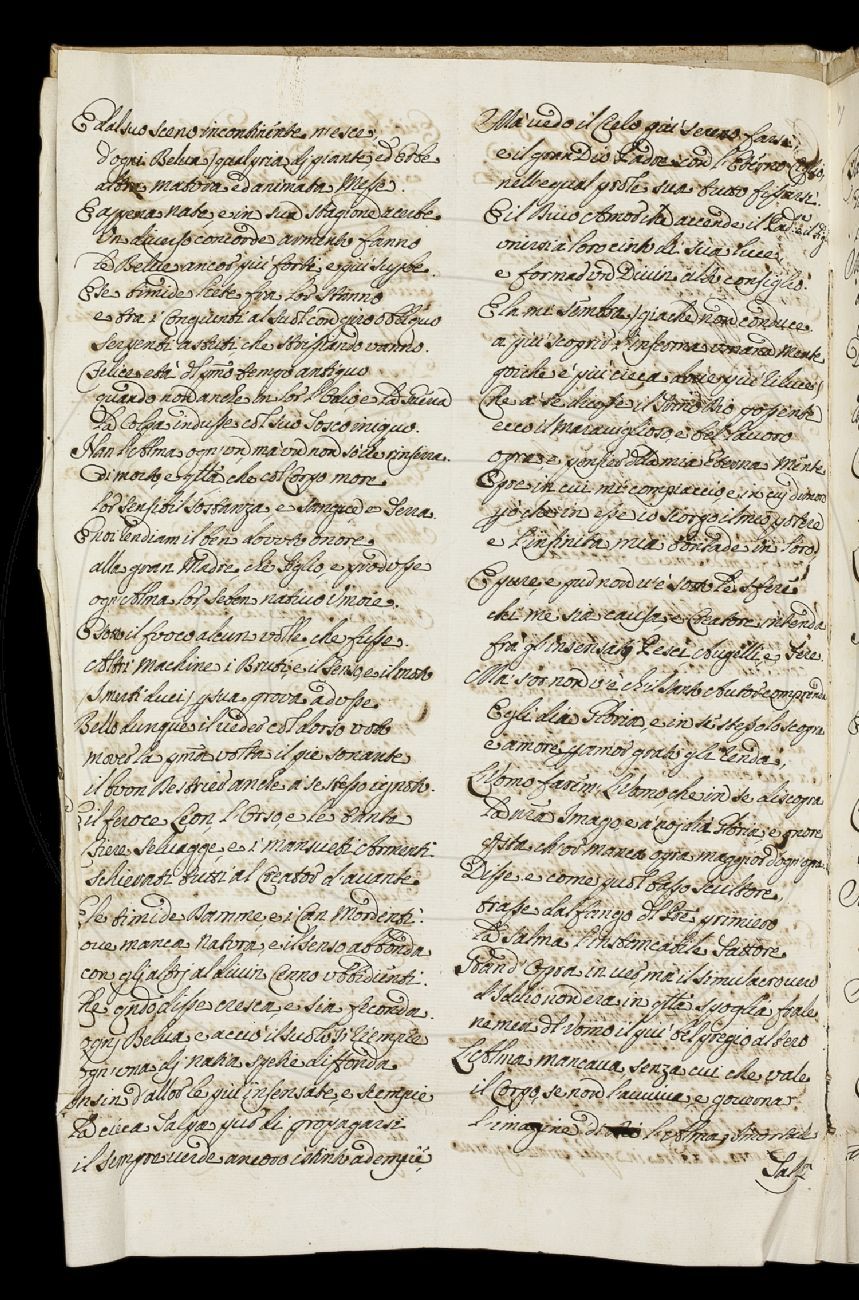 E dal suo sceno incontinente n'esce
d'ogni Belua qualsivia di piante ed Erbe
altra matera ed animata Messe.
E apena nate, e in sua stagione acerbe
Un diverso concorde armento fanno
le Belve ancor più forti, e più superbe.
E le timide liete fra lor stanno
e tra i Congiunti al suol con giro obbliquo
Serpenti astuti che strisciando vanno.
Felice età del primo tempo antiquo
quando non anche in lor l'Odio e la
la Colpa indusse col suo Tosco iniquo.
Han l'Alma ogn'un ma un non so che rinserra
Di morte e questa che col Corpo more
lor sensibil sostanza, e sangue e Terra.
E noi rendiam il ben dovuto onore
alla gran Madre, che seglò, e produsse
ogni Alma lor se ben nativo
E sotto il foco alcun volle, che fusse
Altri Machine i Bruti, e il senso, e il moto
smenti duci, e sua prova addusse
Bello dunque il veder col dorso voto
mover la prima volta il piè sonante
il buon Destrier anche a se stesso ignoto.
E il feroce Leon l'Orso, e le tante
Fiere selvagge, e i mansueti Armenti
schierati tutti al Creator d'avante.
E le timide Damme, e i Can Mordenti
ove manca Natura, e il senso abbonda
con gli altri al divin Cenno ubbidienti.
Che quando disse cresca, e sia feconda
ogni Belva, e acciò il suolo si riempia
ogn'una di natia spezie diffonda
In sin d'allor le più insensate, e scempie
La cieca Talpa può di propagarsi
il sempre verde ancora istinto adempie,
Ma vedo il Cielo più sereno farsi
e il gran Dio Padre con l'Eterno
nell'egual prole sua tutto fissarsi.
E il Divo Amor che accende il Padre e il
unirsi a loro cinto di sua luce
e formar un Divin alto consiglio.
E la mi sembra, giachè non conduce
a più scoprir l'inferma umana Mente
poiche è più cieca dov'è più la luce,
Che a se dicesse il Sommo Dio possente
ecco il Maraviglioso, e bel lavoro
opra, e pensier della mia Eterna Mente
Epoe in cui mi compiaccio e in cui dimoro
giochè in esse io scorgo il mio potere
e l'infinita mia bontade in loro
Eppure, e qui non v'è sotto le sfere
chi me sia causa, e Creatore intenda
fra gl'insensati Pesci Augelli, e Fere.
Ma s'or non v'è chi il Santo Autor comprenda
E gli dia Gloria, e in se stesso lo scopra
e amore per amor grato gli renda,
L'Uomo farem, l'Uomo, che in se discopra
La nostra Imago, e a noi dia Gloria, e onore
questa ch'or manca opra maggior d'ogn'opra
Disse, e come suol basso scultore
trasse dal fango del Pre primiero
La Salma l'instancabile Fattore
Grand'Opra in ver, ma il simulacro vero
d'Iddio non era in questa spoglia frale
ne men de l'Uomo il più bel pregio altero
L'Alma mancava, senza cui che vale
il Corpo, se non l'avviva, e governa
l'imagine d l'Alma, Immortale
Tal